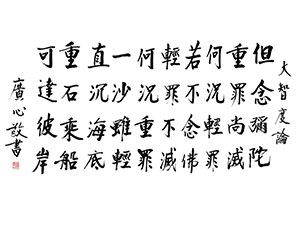 大智度論
但念彌陀
重罪尚滅
何況輕罪
若不念佛
輕罪不滅
何況重罪
一沙雖輕
直沉海底
重石乘船
可達彼岸
廣心敬書